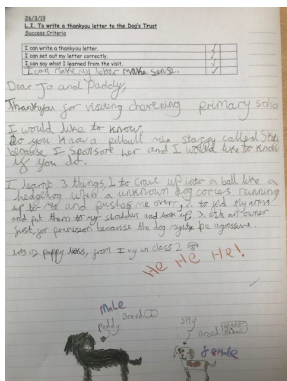 26/3/19
L.I. To write a thankyou letter to the Dog's Trust
Success Criteria
I can write a thankyou letter.
I can set out my letter correctly.
I can say what I learned from the visit.
I can make my letter make sence.
Dear Jo and Paddy,
Thankyou for visiting primary
I would like to know
Do you know a pitbull mix called
because I sponsore her and I would like to know
if you do.
I learnt 3 things, 1 to Crawl up into a ball like a
hedgehog when a unknown dog comes running
up to me and pushes me over, 2. to fold my arms
and put them to my and look up, 3. ask an owner
just for permission because the dog might be agresive.
Lots of puppy kisses, from Ivy in class 2
He He He!
Male
Breed
Paddy
Shy
Breed
female